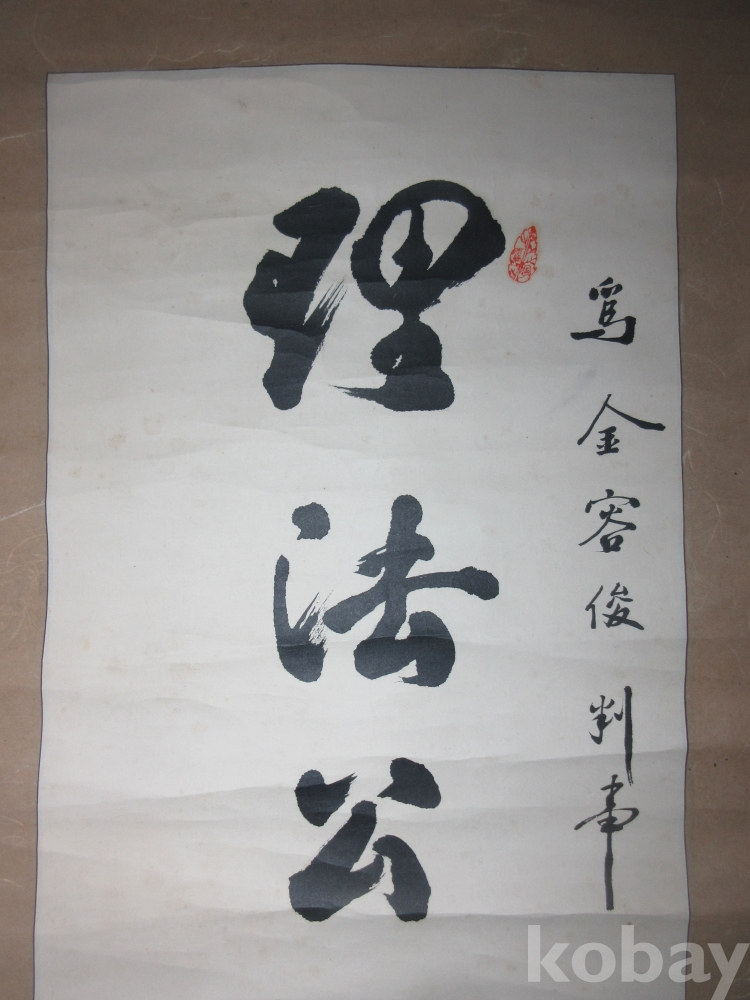 爲金容俊判事
理法公
kobay